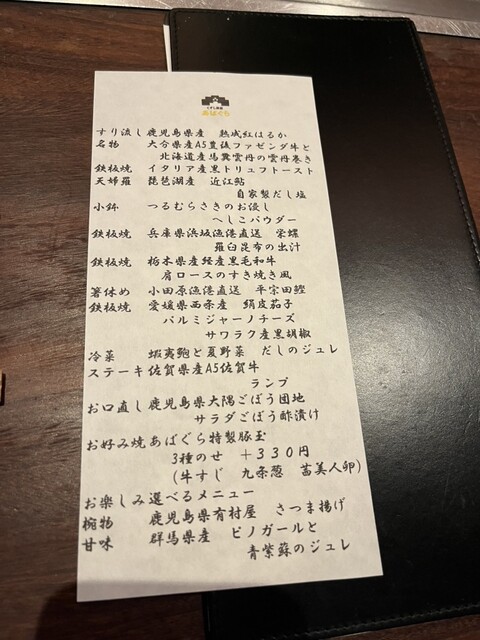 あばぐら
すり流し 鹿児島県産 熟成紅はるか
名物 大分県産A5豊後ファゼンダ牛と
北海道産馬糞雲丹の雲丹巻き
鉄板焼 イタリア産黒トリュフトースト
天婦羅 琵琶湖産 近江鮎
自家製だし塩
小鉢 つるむらさきのお浸し
へしこパウダー
鉄板焼 兵庫県浜坂漁港直送 栄螺
羅臼昆布の出汁
鉄板焼 栃木県産経産黒毛和牛
肩ロースのすき焼き風
箸休め 小田原漁港直送 平宗田鰹
鉄板焼 愛媛県西条産 絹皮茄子
パルミジャーノチーズ
サワラク産黒胡椒
冷菜 蝦夷鮑と夏野菜 だしのジュレ
ステーキ 佐賀県産A5佐賀牛
ランプ
お口直し 鹿児島県大隅ごぼう団地
サラダごぼう酢漬け
お好み焼 あばぐら特製豚玉
3種のせ +330円
(牛すじ 九条葱 茜美人卵)
お楽しみ 選べるメニュー
椀物 鹿児島県有村屋 さつま揚げ
甘味 群馬県産 ピノガールと
青紫蘇のジュレ